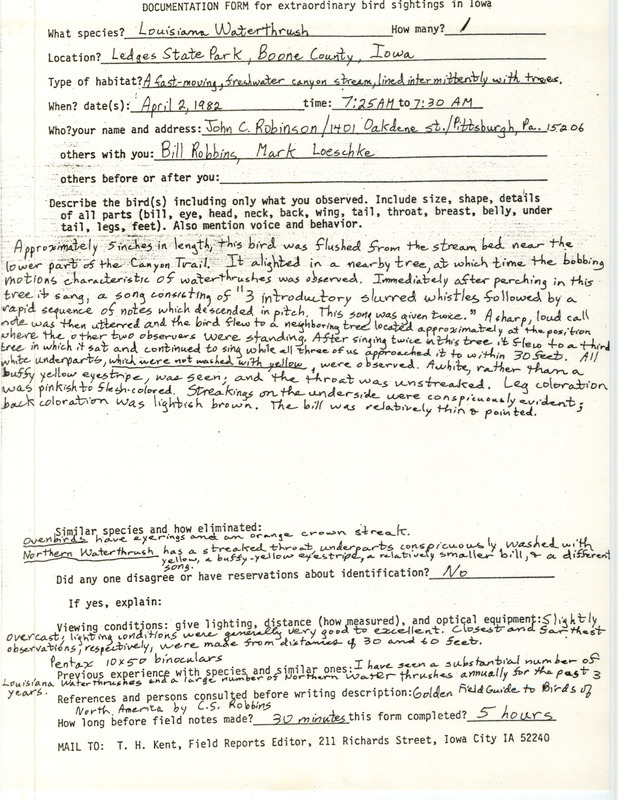 DOCUMENTATION FORM for extraordinary bird sightings in Iowa
What species? Louisiana Waterthrush How many? 1
Location? Ledges State Park, Boone County, Iowa
Type of habitat? A fast-moving, freshwater canyon stream, lined intermittently with trees.
When? date(s): April 2, 1982 time: 7:25AM to 7:30 AM
Who? your name and address: John C. Robinson/1401 Oakdene St./Pittsburgh, Pa. 15206
others with you: Bill Robbins, Mark Loeschke
others before or after you:
Describe the bird(s) including only what you observed. Include size, shape, details
of all parts (bill, eye, head, neck, back, wing, tail, throat, breast, belly, under
tail, legs, feet). Also mention voice and behavior.
Approximately 5 inches in length, this bird was flushed from the stream bed near the
lower part of the Canyon Trail. It alighted in a nearby tree, at which time the bobbing
motions characteristic of waterthrushes was observed. Immediately after perching in this
tree it sang, a song consisting of "3 introductory slurred whistles followed by a
rapid sequence of notes which descended in pitch. This song was given twice." A sharp, loud call
note was then uttered and the bird flew to a neighboring tree located approximately at the position
where the other two observers were standing. After singing twice in this tree it flew to a third
tree in which it sat and continued to sing while all three of us approached it to within 30 feet. All
white underparts, which were not washed with yellow, were observed. A white, rather than a
buffy yellow eyestripe, was seen; and the throat was unstreaked. Leg coloration
was pinkish to flesh-colored. Streakings on the underside were conspicuously evident;
back coloration was lightish brown. The bill was relatively thin & pointed.
Similar species and how eliminated:
Ovenbirds have eyerings and an orange crown streak.
Northern Waterthrush has a streaked throat, underparts conspicuously washed with
yellow, a buffy-yellow eyestripe, a relatively smaller bill, & a different
song.
Did any one disagree or have reservations about identification? No
If yes, explain:
Viewing conditions: give lighting, distance (how measured), and optical equipment: Slightly
overcast; lighting conditions were generally very good to excellent. Closest and farthest
observations, respectively, were made from distances of 30 and 60 feet.
Pentax 10x50 binoculars
Previous experience with species and similar ones: I have seen a substantial number of
Louisiana Waterthrushes and a large number of Northern Waterthrushes annually for the past 3
years.
References and persons consulted before writing description: Golden Field Guide to Birds of
North America by C.S. Robbins
How long before field notes made? 30 minutes this form completed? 5 hours
MAIL TO: T. H. Kent, Field Reports Editor, 211 Richards Street, Iowa City IA 52240